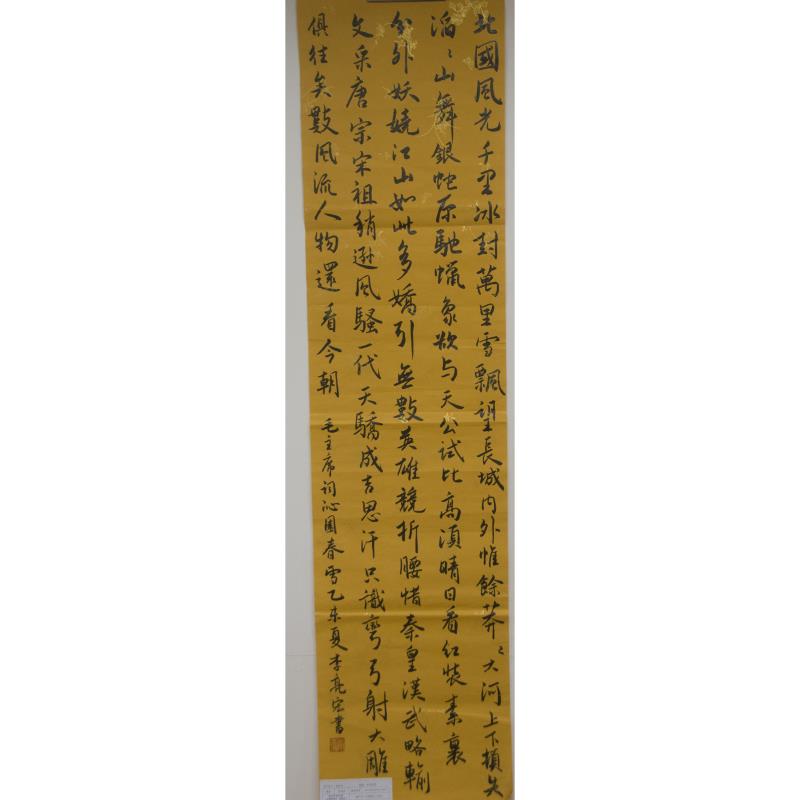 北國風光千里冰封萬里雪飄望長城内外惟餘莽〻大河上下頓失
滔〻山舞銀蛇原馳蠟象欲与天公試比高須晴日看红裝素裹
分外妖嬈江山如此多嬌引無數英雄競折腰惜秦皇漢武略輸
文采唐宗宋祖稍遜風騷一代天驕成吉思汗只識彎弓射大雕
俱往矣數風流人物還看今朝 毛主席词沁園春雪乙未夏李亮宏書